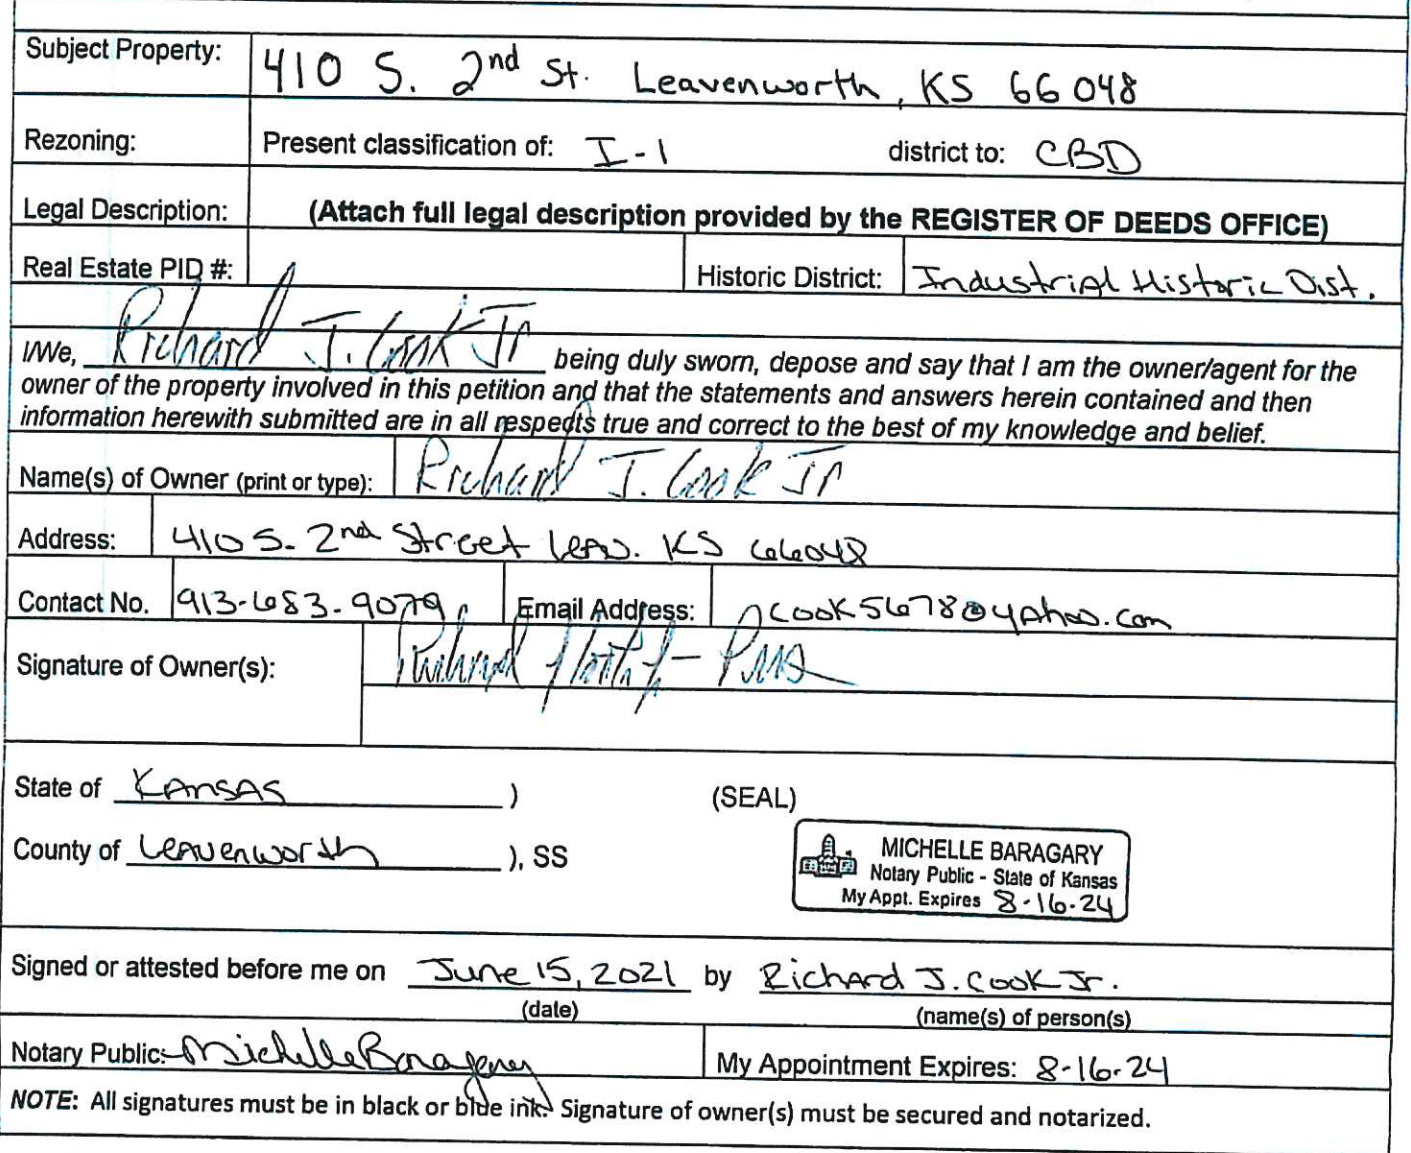 Subject Property: 410 S. 2nd St. Leavenworth, KS 66048
Rezoning: Present classification of: I-1 district to: CBD
Legal Description: (Attach full legal description provided by the REGISTER OF DEEDS OFFICE)
Real Estate PID #: Historic District: Industrial Historic Dist.
I/We, Richard J. Cook Jr being duly sworn, depose and say that I am the owner/agent for the
owner of the property involved in this petition and that the statements and answers herein contained and then
information herewith submitted are in all respects true and correct to the best of my knowledge and belief.
Name(s) of Owner (print or type): Richard J. Cook Jr
Address: 410 S. 2nd Street Leav. KS 66048
Contact No. 913-683-9079 Email Address: rcook5678@yahoo.com
Signature of Owner(s): Richard
State of Kansas ) (SEAL)
County of Leavenworth ), SS
MICHELLE BARAGARY
Notary Public - State of Kansas
My Appt. Expires 8-16-24
Signed or attested before me on June 15, 2021 by Richard J. Cook Jr.
(date) (name(s) of person(s)
Notary Public: Michelle Baragary My Appointment Expires: 8-16-24
NOTE: All signatures must be in black or blue ink. Signature of owner(s) must be secured and notarized.